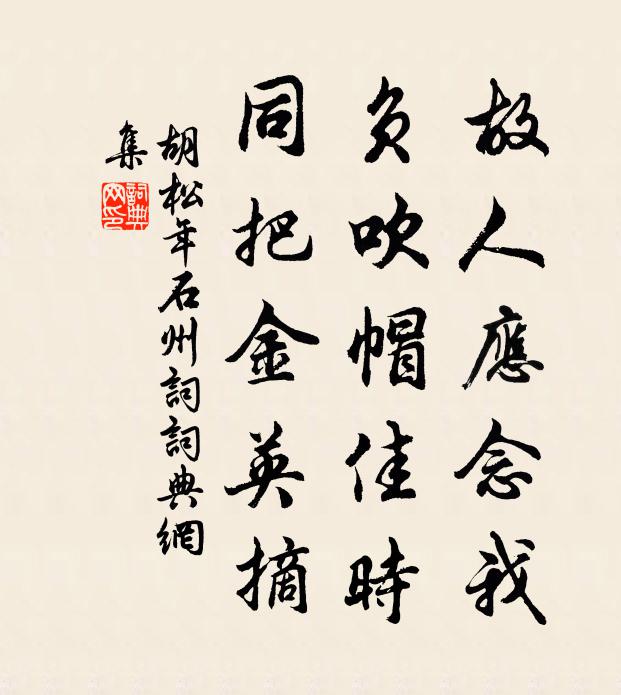 故人應念我
負吹帽佳時
同把金英摘
胡松年石州詞詞典網
集
詞典网印